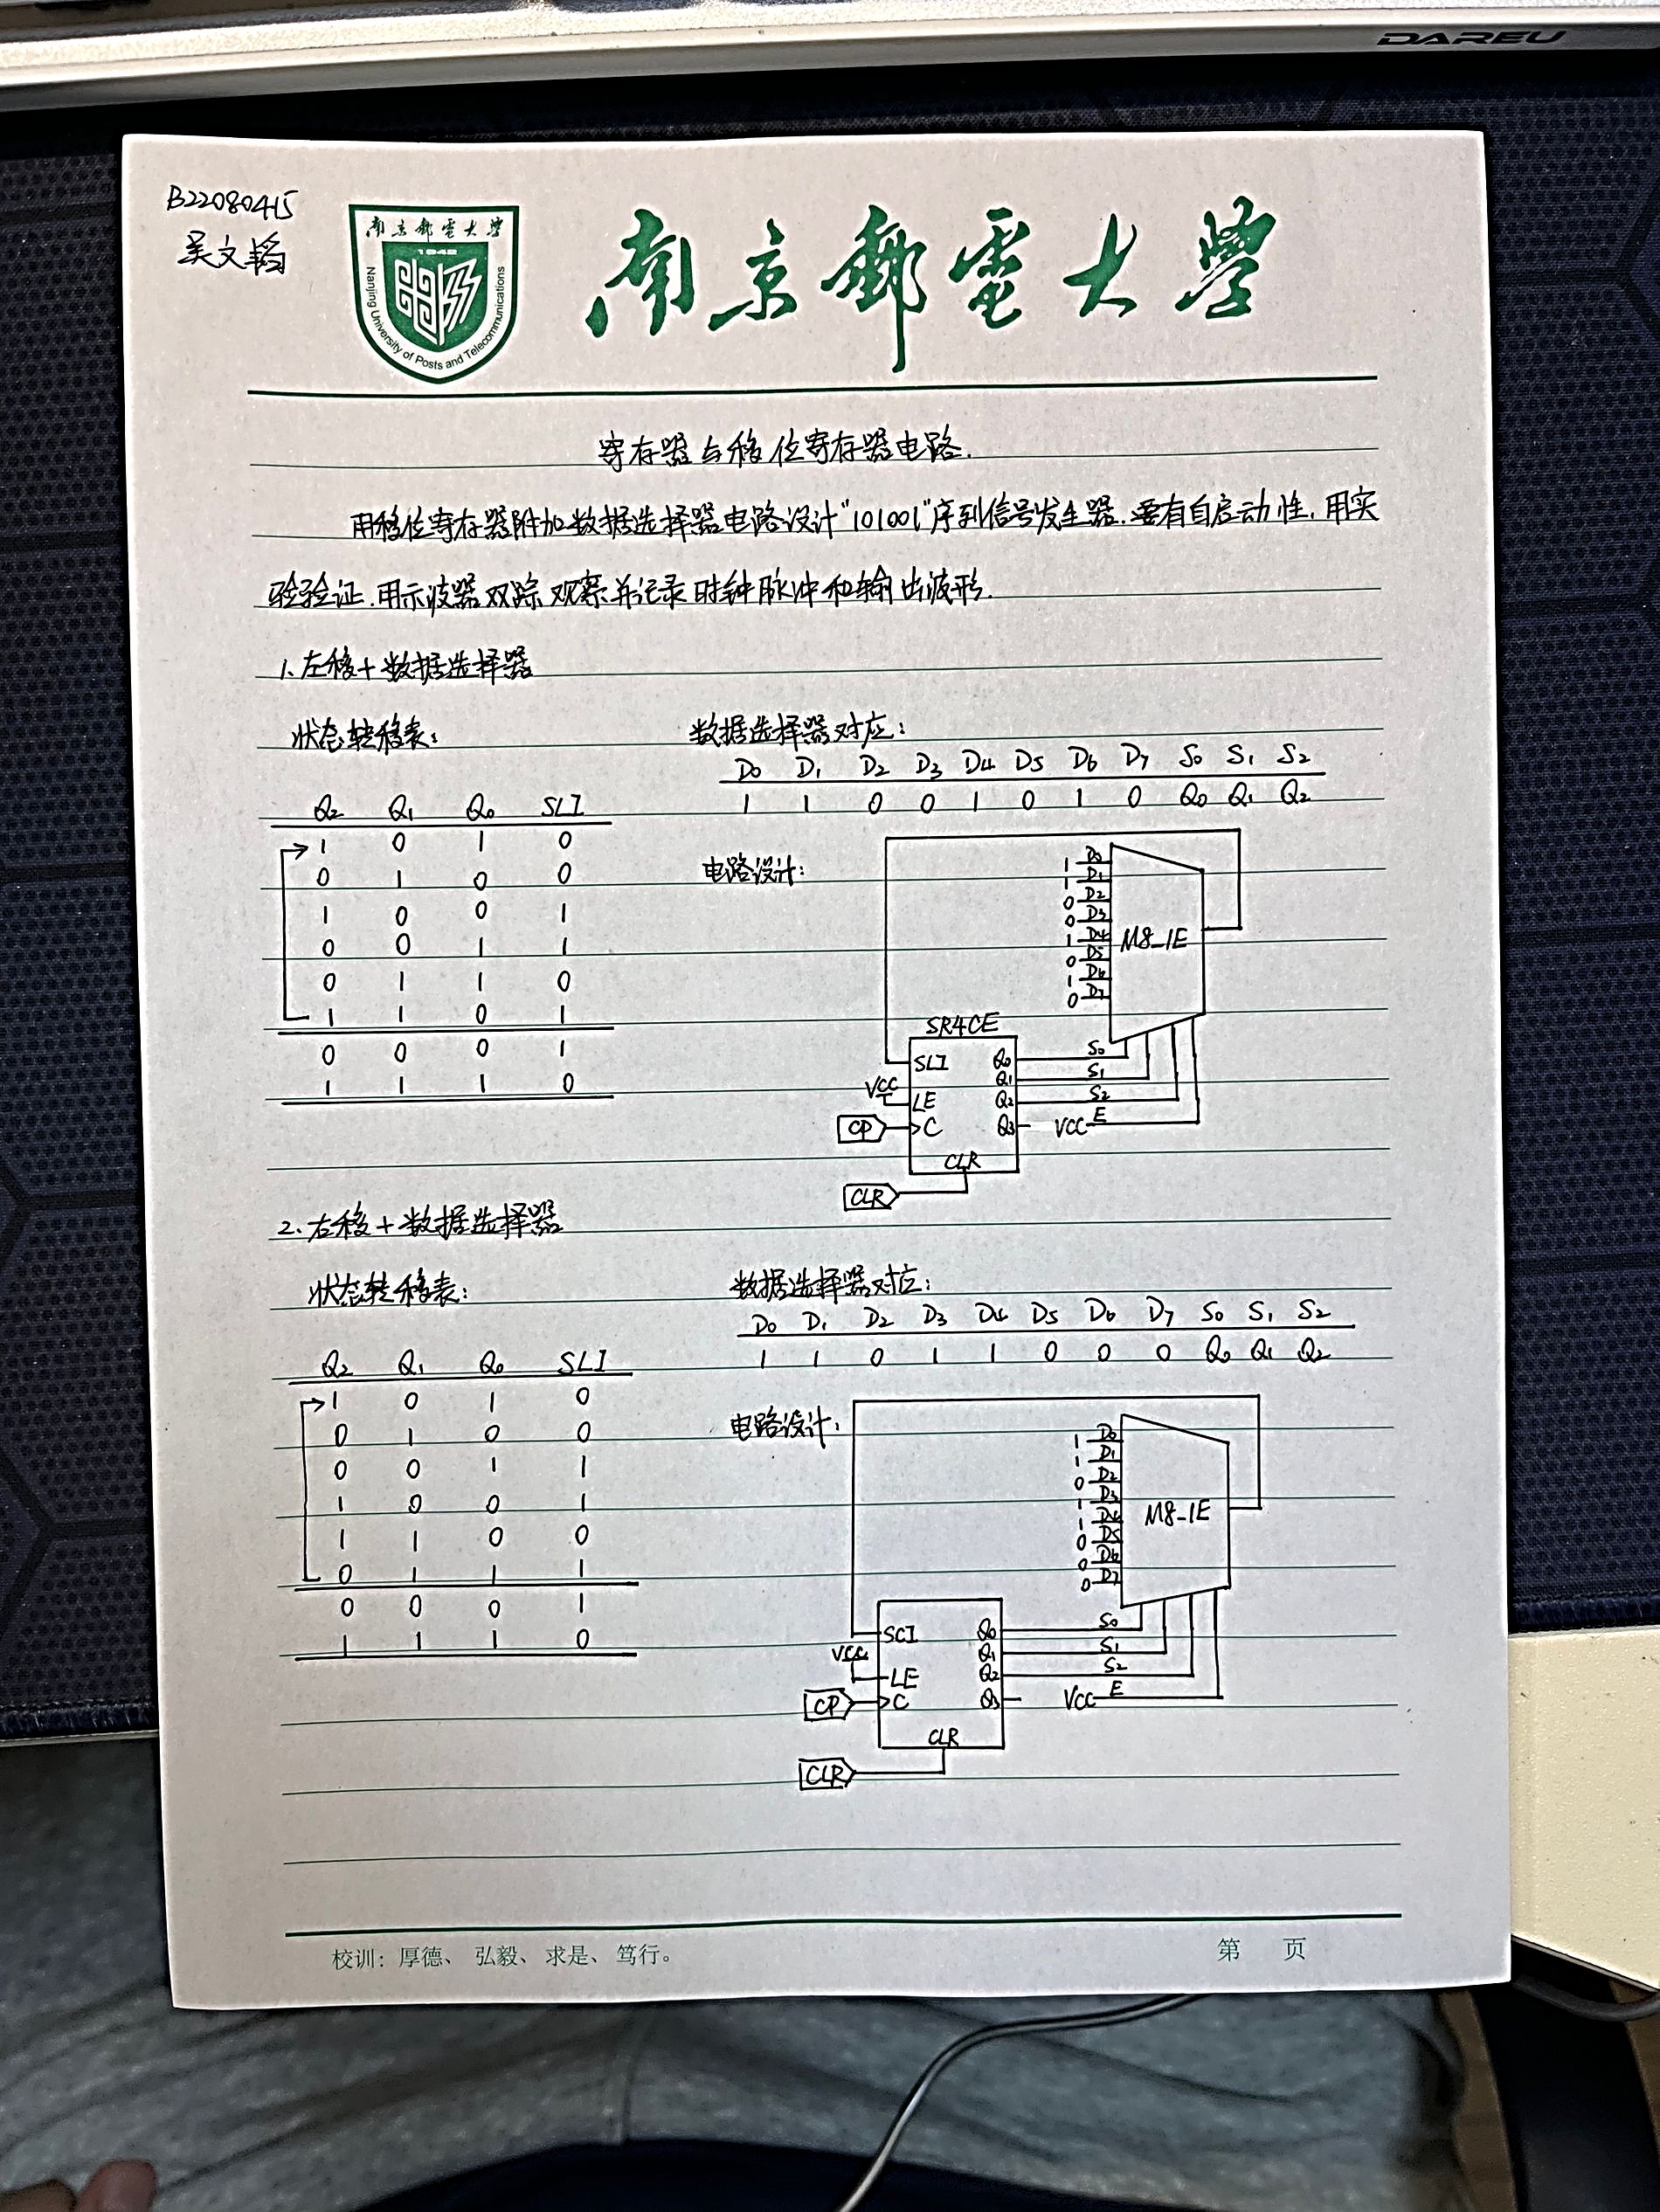 DAREU
B22080415
吴文韬
南京邮电大学
1942
Nanjing University of Posts and Telecommunications
南京郵電大學
寄存器与移位寄存器电路.
用移位寄存器附加数据选择器电路设计"101001"序列信号发生器.要有自启动性,用实
验验证.用示波器双踪观察并记录时钟脉冲和输出波形.
1.左移+数据选择器
状态转移表:
Q2 Q1 Q0 SLI
1 0 1 0
0 1 0 0
1 0 0 1
0 0 1 1
0 1 1 0
1 1 0 1
0 0 0 1
1 1 1 0
数据选择器对应:
D0 D1 D2 D3 D4 D5 D6 D7 S0 S1 S2
1 1 0 0 1 0 1 0 Q0 Q1 Q2
电路设计:
1 D0
1 D1
0 D2
0 D3
1 D4
0 D5
1 D6
0 D7
M8_1E
SR4CE
SLI Q0 S0
Q1 S1
VCC LE Q2 S2
CP C Q3 VCC E
CLR
CLR
2.右移+数据选择器
状态转移表:
Q2 Q1 Q0 SLI
1 0 1 0
0 1 0 0
0 0 1 1
1 0 0 1
1 1 0 0
0 1 1 1
0 0 0 1
1 1 1 0
数据选择器对应:
D0 D1 D2 D3 D4 D5 D6 D7 S0 S1 S2
1 1 0 1 1 0 0 0 Q0 Q1 Q2
电路设计:
1 D0
1 D1
0 D2
1 D3
1 D4
0 D5
0 D6
0 D7
M8_1E
SCI Q0 S0
Q1 S1
VCC LE Q2 S2
CP C Q3 VCC E
CLR
CLR
校训：厚德、弘毅、求是、笃行。
第 页